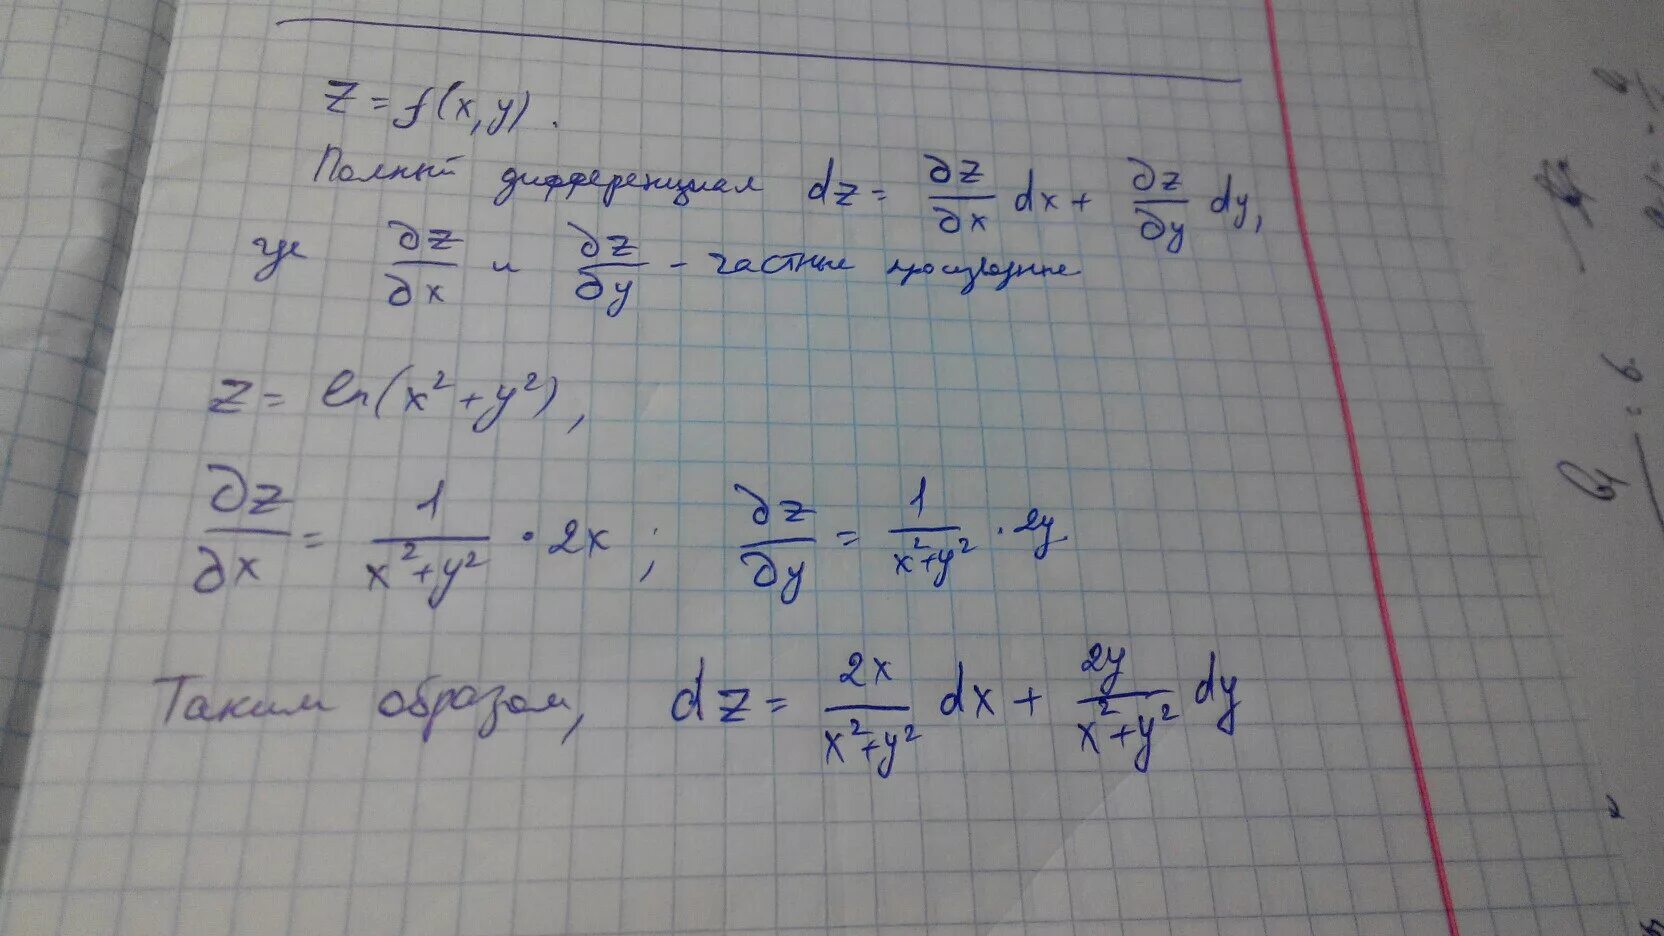 z = f(x,y).
Полный дифференциал dz = ∂z/∂x dx + ∂z/∂y dy,
где ∂z/∂x и ∂z/∂y - частные производные
z = ln(x²+y²),
∂z/∂x = 1/(x²+y²) · 2x ; ∂z/∂y = 1/(x²+y²) · 2y
Таким образом, dz = 2x/(x²+y²) dx + 2y/(x²+y²) dy